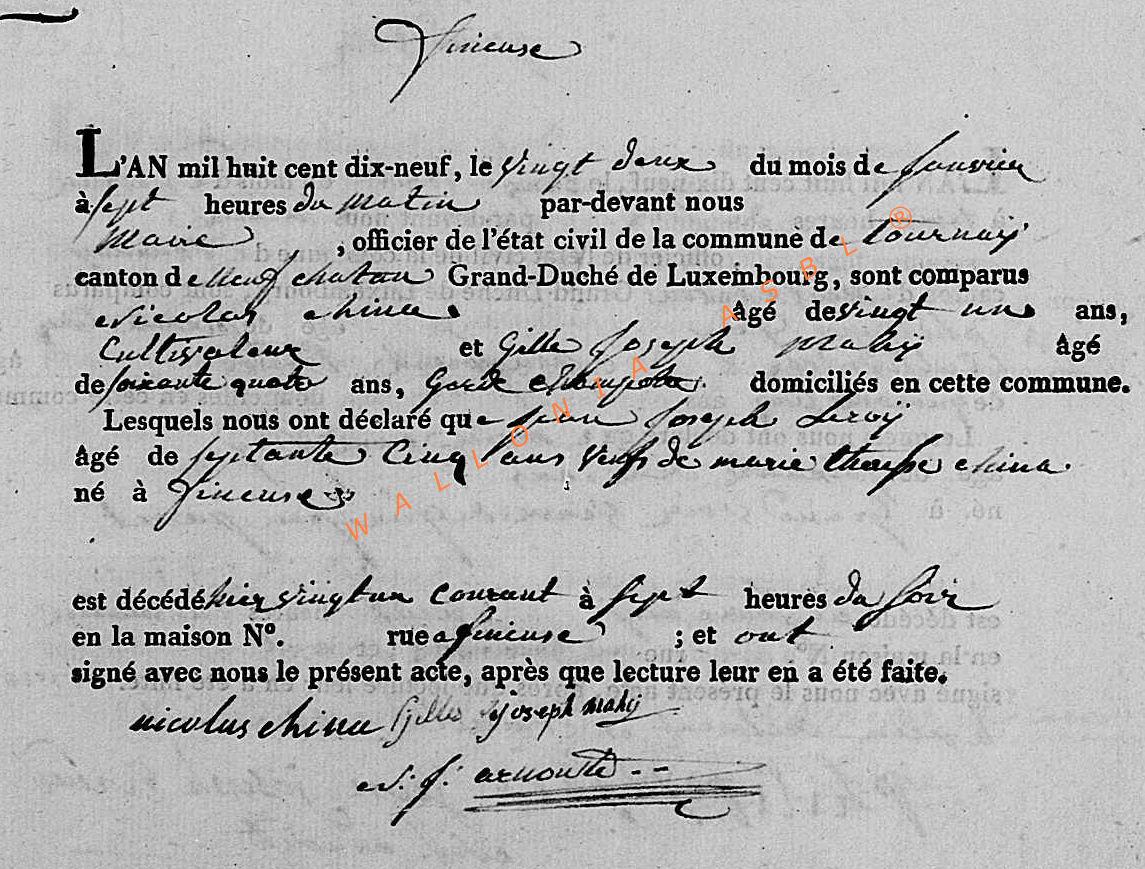 fineuse
L'AN mil huit cent dix-neuf, le vingt deux du mois de janvier
à sept heures du matin par-devant nous
Maire, officier de l'état civil de la commune de tournaÿ
canton de neufchatau Grand-Duché de Luxembourg, sont comparus
Nicolas china âgé de vingt un ans,
Cultivateur et Gille joseph mahÿ âgé
de soixante quatre ans, Garde champetre domiciliés en cette commune.
Lesquels nous ont déclaré que jean joseph Leroÿ
âgé de septante cinq ans veuf de marie therese china
né à fineuse
est décédé hier vingt un courant à sept heures du soir
en la maison Nº. rue a fineuse ; et ont
signé avec nous le présent acte, après que lecture leur en a été faite.
nicolas china Gilles joseph mahÿ
arnould
WALLONIA ASBL ®